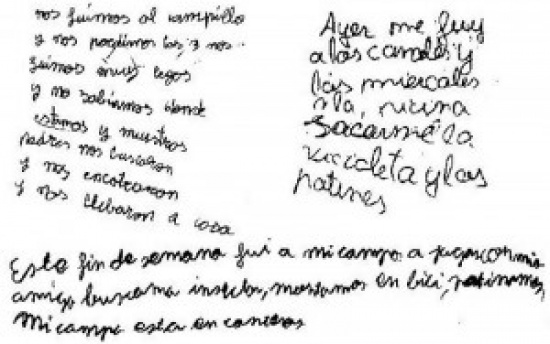 nos fuimos al campillo
y nos perdimos los 3 nos
fuimos muy legos
y no sabiamos donde
estamos y nuestros
padres nos buscaron
y nos encotraron
y nos llebaron a casa
Ayer me fuy
a las canales y
las miercales
a la
sacarme la
vicicleta y los
patines
Este fin de semana fui a mi campo a jugar con mis
amigo insectos, montamos en bici, patinamos
mi campo esta en canteras